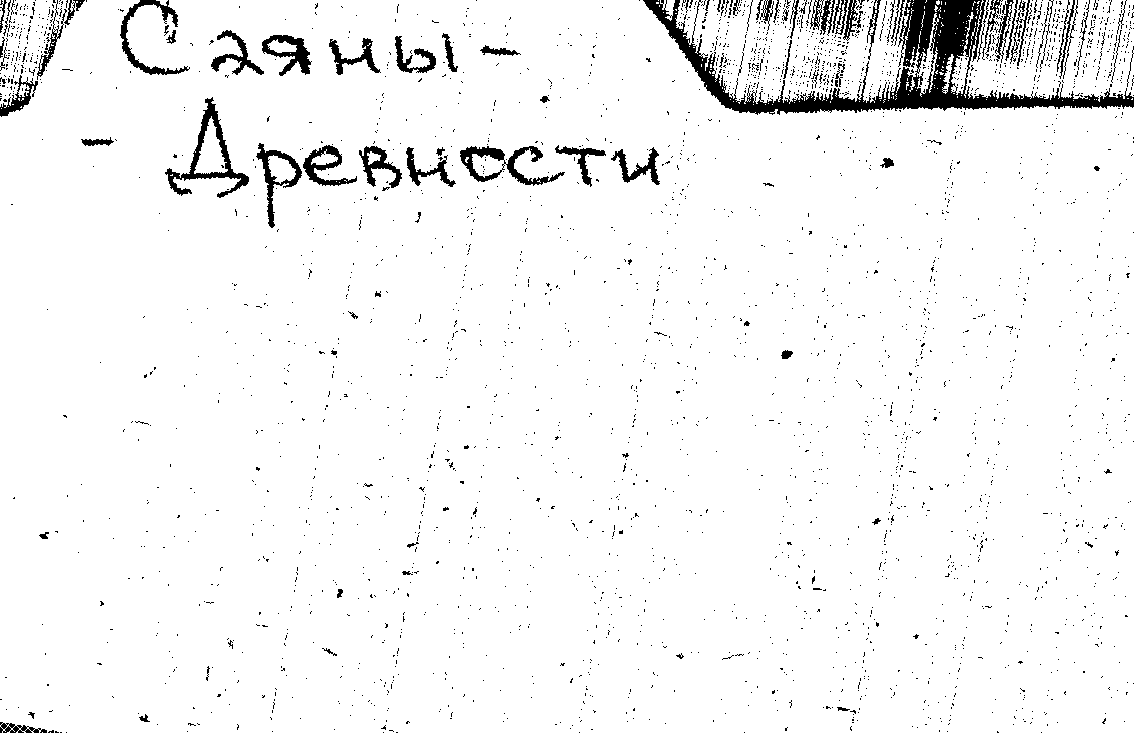 Саяны -
- Древности